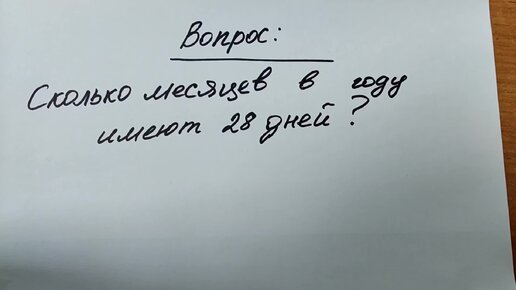 Вопрос:
Сколько месяцев в году
имеют 28 дней?